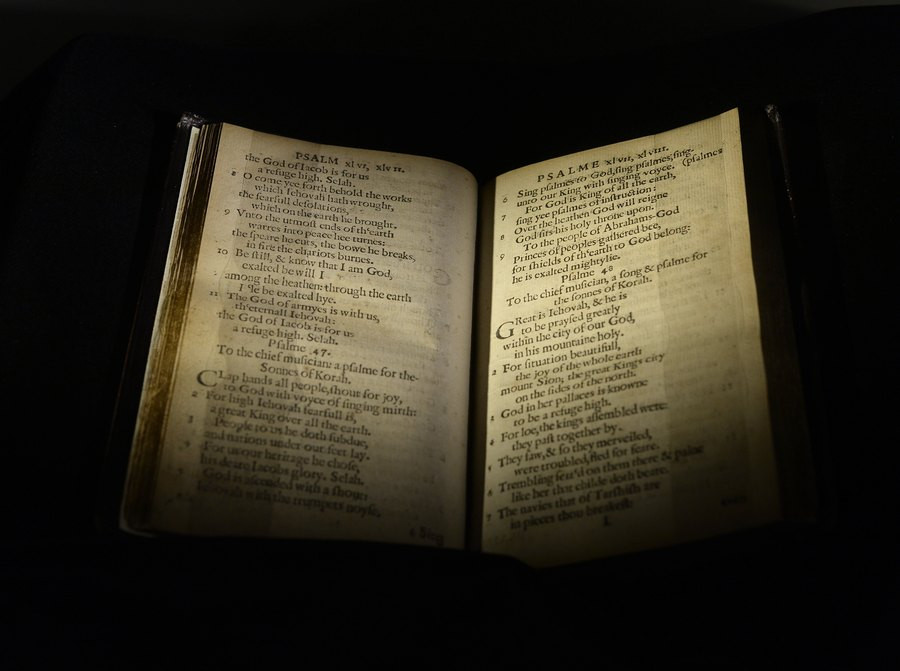 PSALM xlvi, xlvii.
the God of Iacob is for us
a refuge high. Selah.
8 O come yee forth behold the works
which Iehovah hath wrought,
the fearfull desolations,
which on the earth he brought,
9 Vnto the utmost ends of th'earth
warres into peace hee turnes:
the speare he cuts, the bowe he breaks,
in fire the chariots burnes.
10 Be still, & know that I am God,
exalted be will I
among the heathen: through the earth
I'le be exalted hye.
11 The God of armyes is with us,
th'eternall Iehovah:
the God of Iacob is for us
a refuge high. Selah.
Psalme 47.
To the chief musician: a psalme for the
Sonnes of Korah.
CLap hands all people, shout for joy,
to God with voyce of singing mirth:
2 For high Iehovah fearfull is,
a great King over all the earth.
3 People to us he doth subdue,
and nations under our feet lay.
4 For us our heritage he chose,
his deare Iacobs glory. Selah.
5 God is ascended with a shout:
Iehovah with the trumpets noyse.
6 Sing
PSALME xlvii, xlviii.
6 Sing psalmes to God, sing psalmes, sing
unto our King with singing voyce. (psalmes
7 For God is King of all the earth,
sing yee psalmes of instruction:
8 Over the heathen God will reigne
God sits his holy throne upon.
9 To the people of Abrahams God
Princes of peoples gathered bee,
for shields of th'earth to God belong:
he is exalted mightylie.
Psalme 48
To the chief musician, a song & psalme for
the sonnes of Korah.
GReat is Iehovah, & he is
to be praysed greatly
within the city of our God,
in his mountaine holy.
2 For situation beautifull,
the joy of the whole earth
mount Sion; the great Kings city
on the sides of the north.
3 God in her pallaces is knowne
to be a refuge high.
4 For loe, the kings assembled were:
they past together by.
5 They saw, & so they merveiled,
were troubled, fled for feare.
6 Trembling seiz'd on them there & paine
like her that childe doth beare.
7 The navies that of Tarshish are
in pieces thou breakest:
L